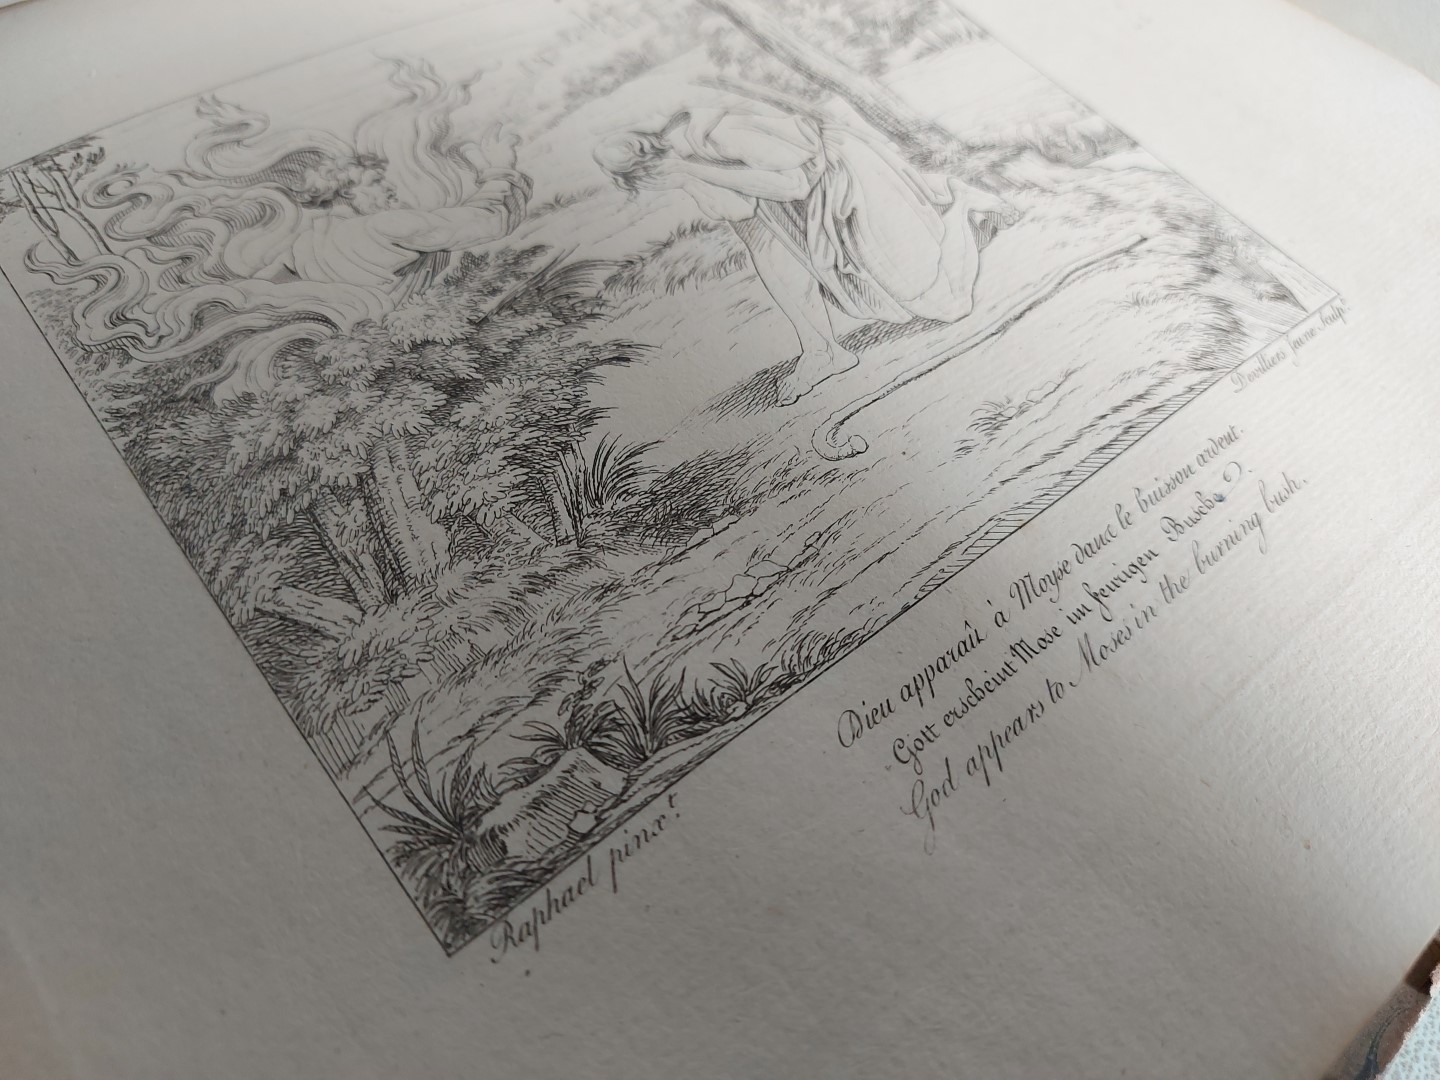 Raphael pinx.t
Devilliers jeune Sculp.t
Dieu apparaît à Moyse dans le buisson ardent.
Gott erscheint Mose im feurigen Busche.
God appears to Moses in the burning bush.